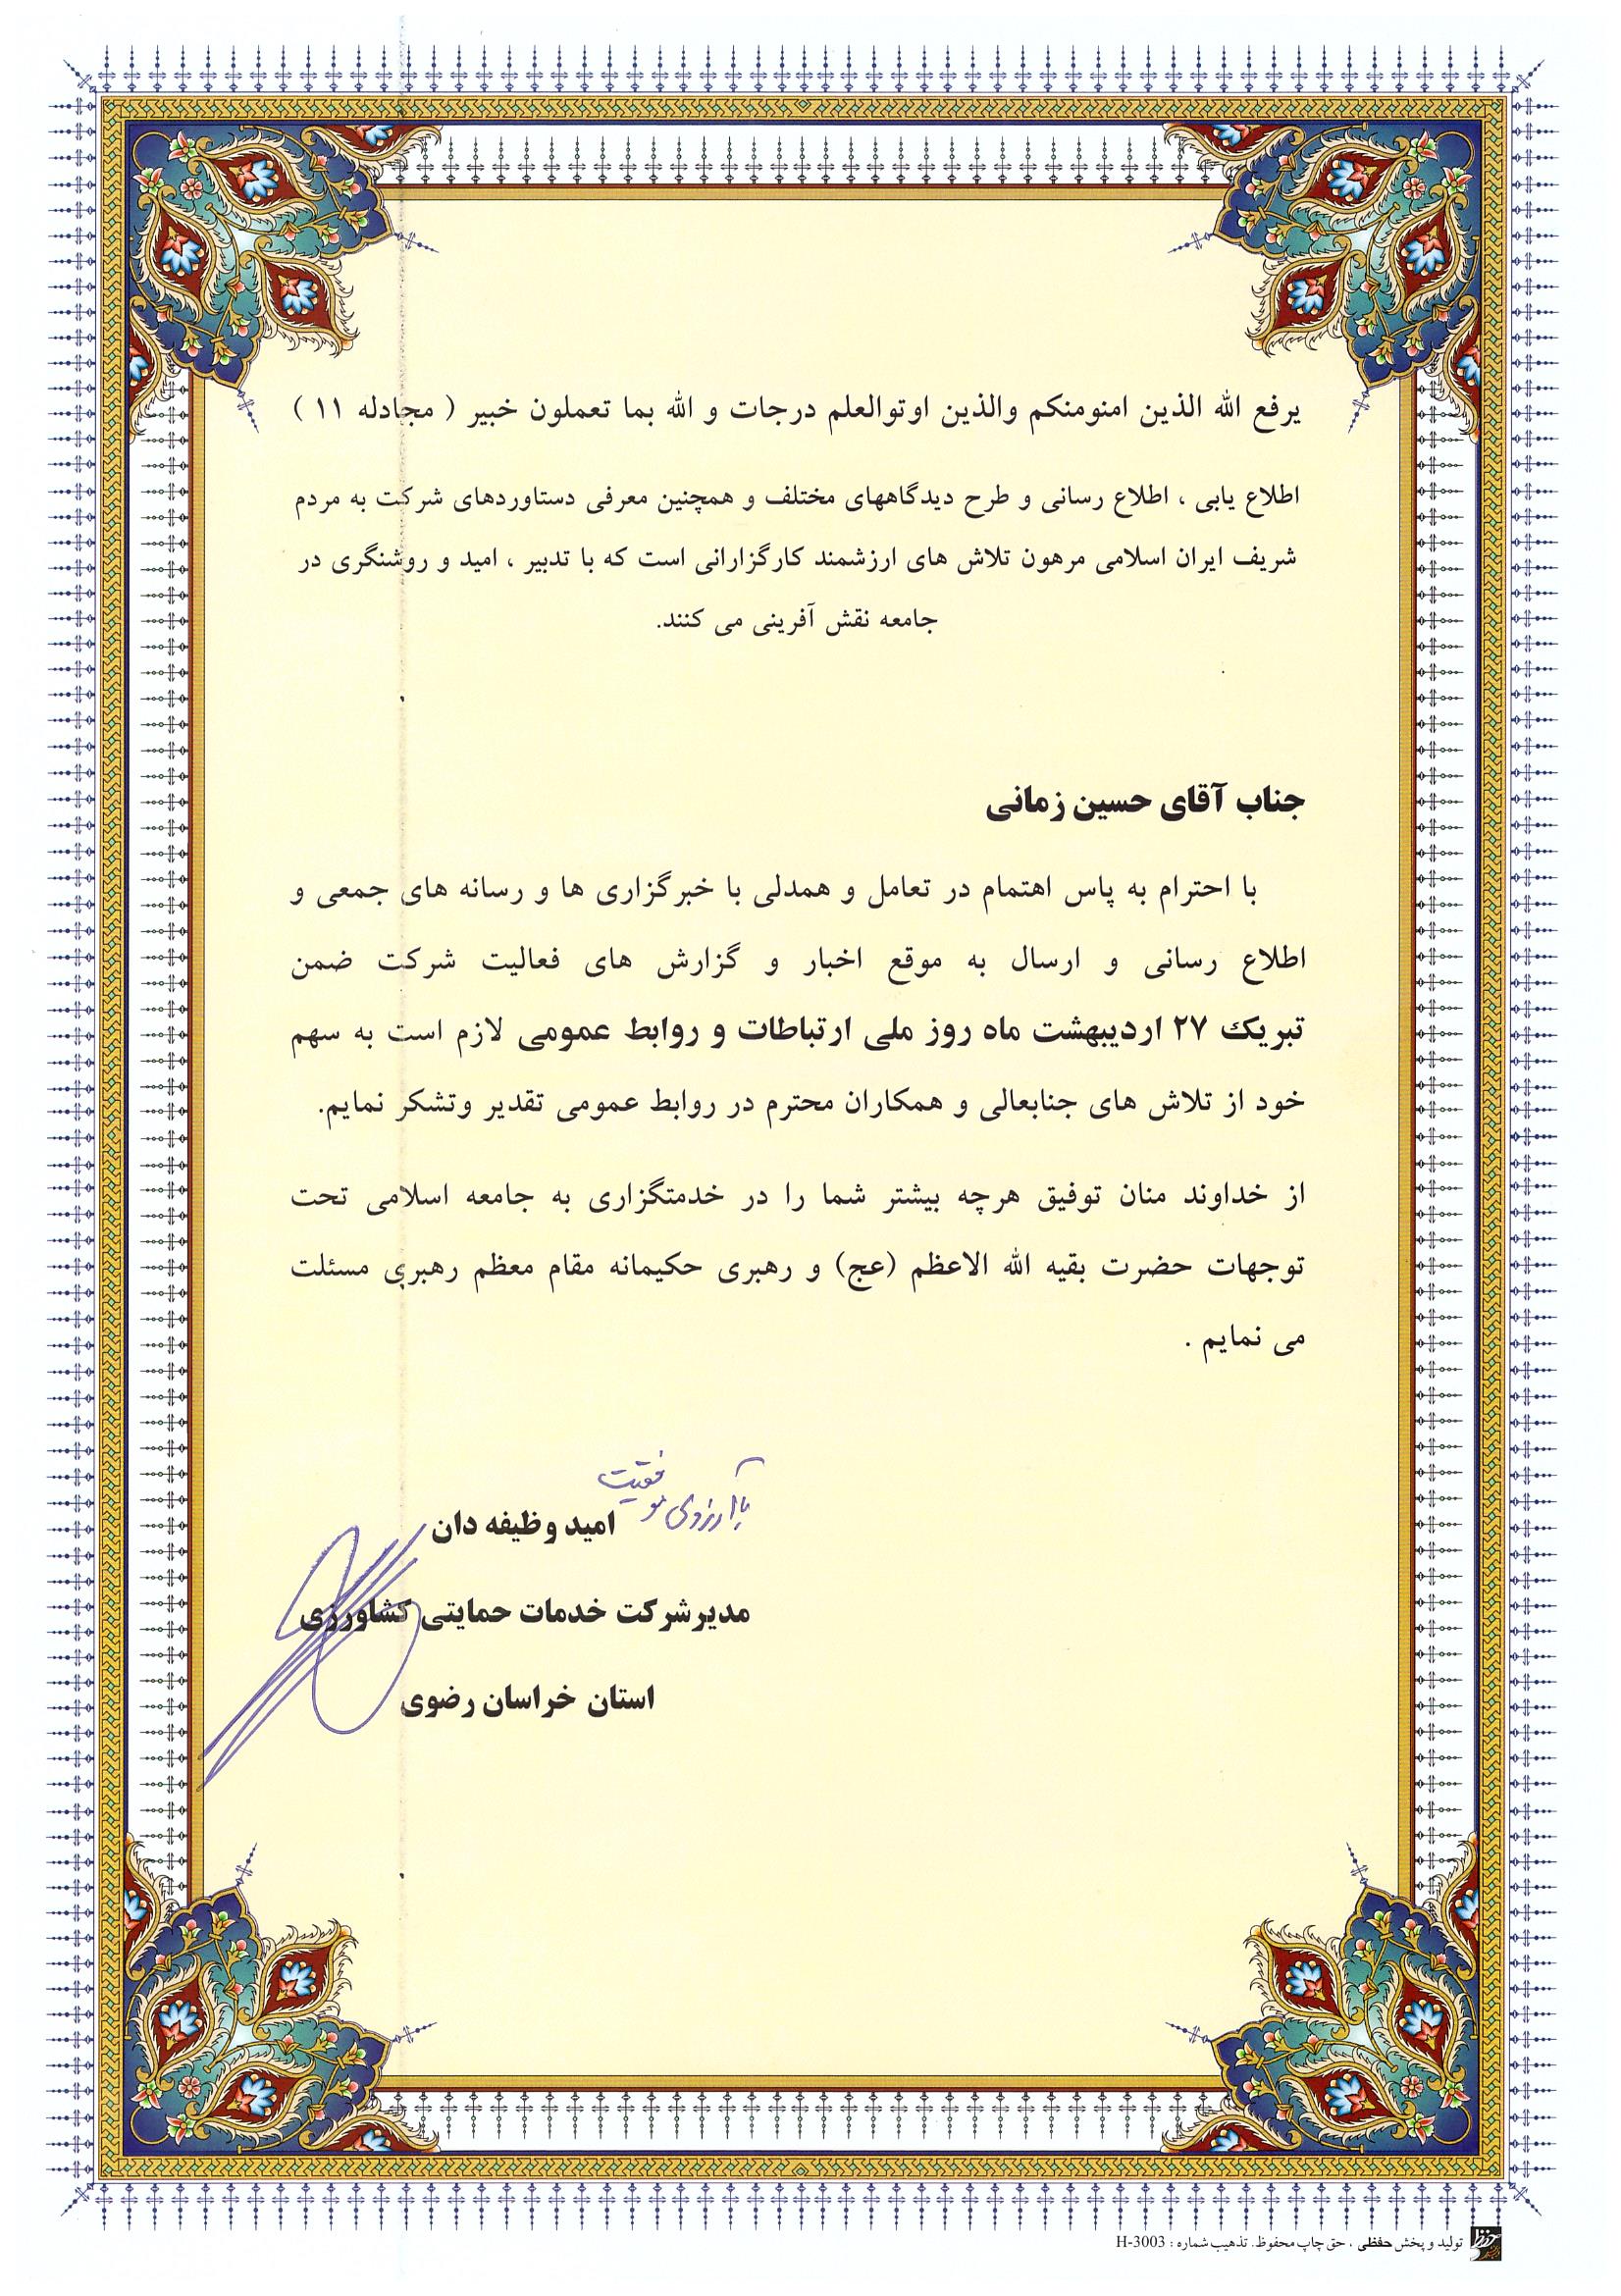 یرفع الله الذین امنومنکم والذین اوتوالعلم درجات و الله بما تعملون خبیر ( مجادله ۱۱ )
اطلاع یابی ، اطلاع رسانی و طرح دیدگاههای مختلف و همچنین معرفی دستاوردهای شرکت به مردم
شریف ایران اسلامی مرهون تلاش های ارزشمند کارگزارانی است که با تدبیر ، امید و روشنگری در
جامعه نقش آفرینی می کنند.
جناب آقای حسین زمانی
با احترام به پاس اهتمام در تعامل و همدلی با خبرگزاری ها و رسانه های جمعی و
اطلاع رسانی و ارسال به موقع اخبار و گزارش های فعالیت شرکت ضمن
تبریک ۲۷ اردیبهشت ماه روز ملی ارتباطات و روابط عمومی لازم است به سهم
خود از تلاش های جنابعالی و همکاران محترم در روابط عمومی تقدیر وتشکر نمایم.
از خداوند منان توفیق هرچه بیشتر شما را در خدمتگزاری به جامعه اسلامی تحت
توجهات حضرت بقیه الله الاعظم (عج) و رهبری حکیمانه مقام معظم رهبری مسئلت
می نمایم .
با آرزوی موفقیت
امید وظیفه دان
مدیرشرکت خدمات حمایتی کشاورزی
استان خراسان رضوی
تولید و پخش حفظی ، حق چاپ محفوظ. تذهیب شماره : H-3003